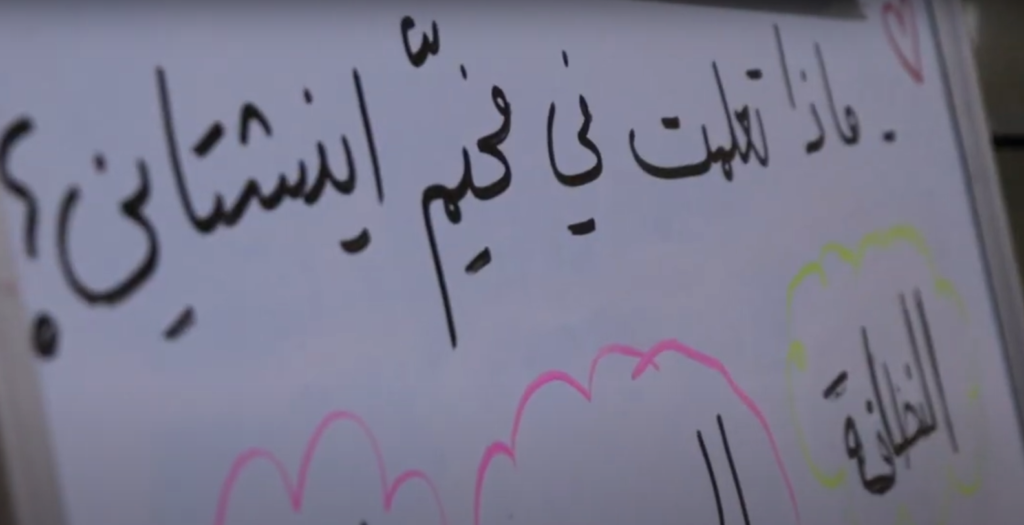 ماذا تعلمت في مخيّم اينشتايني؟
النظافة
ال